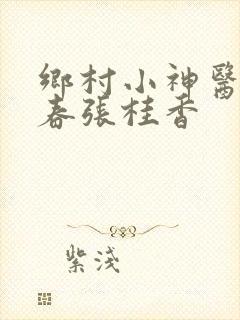 鄉村小神醫
春張桂香
紫淺